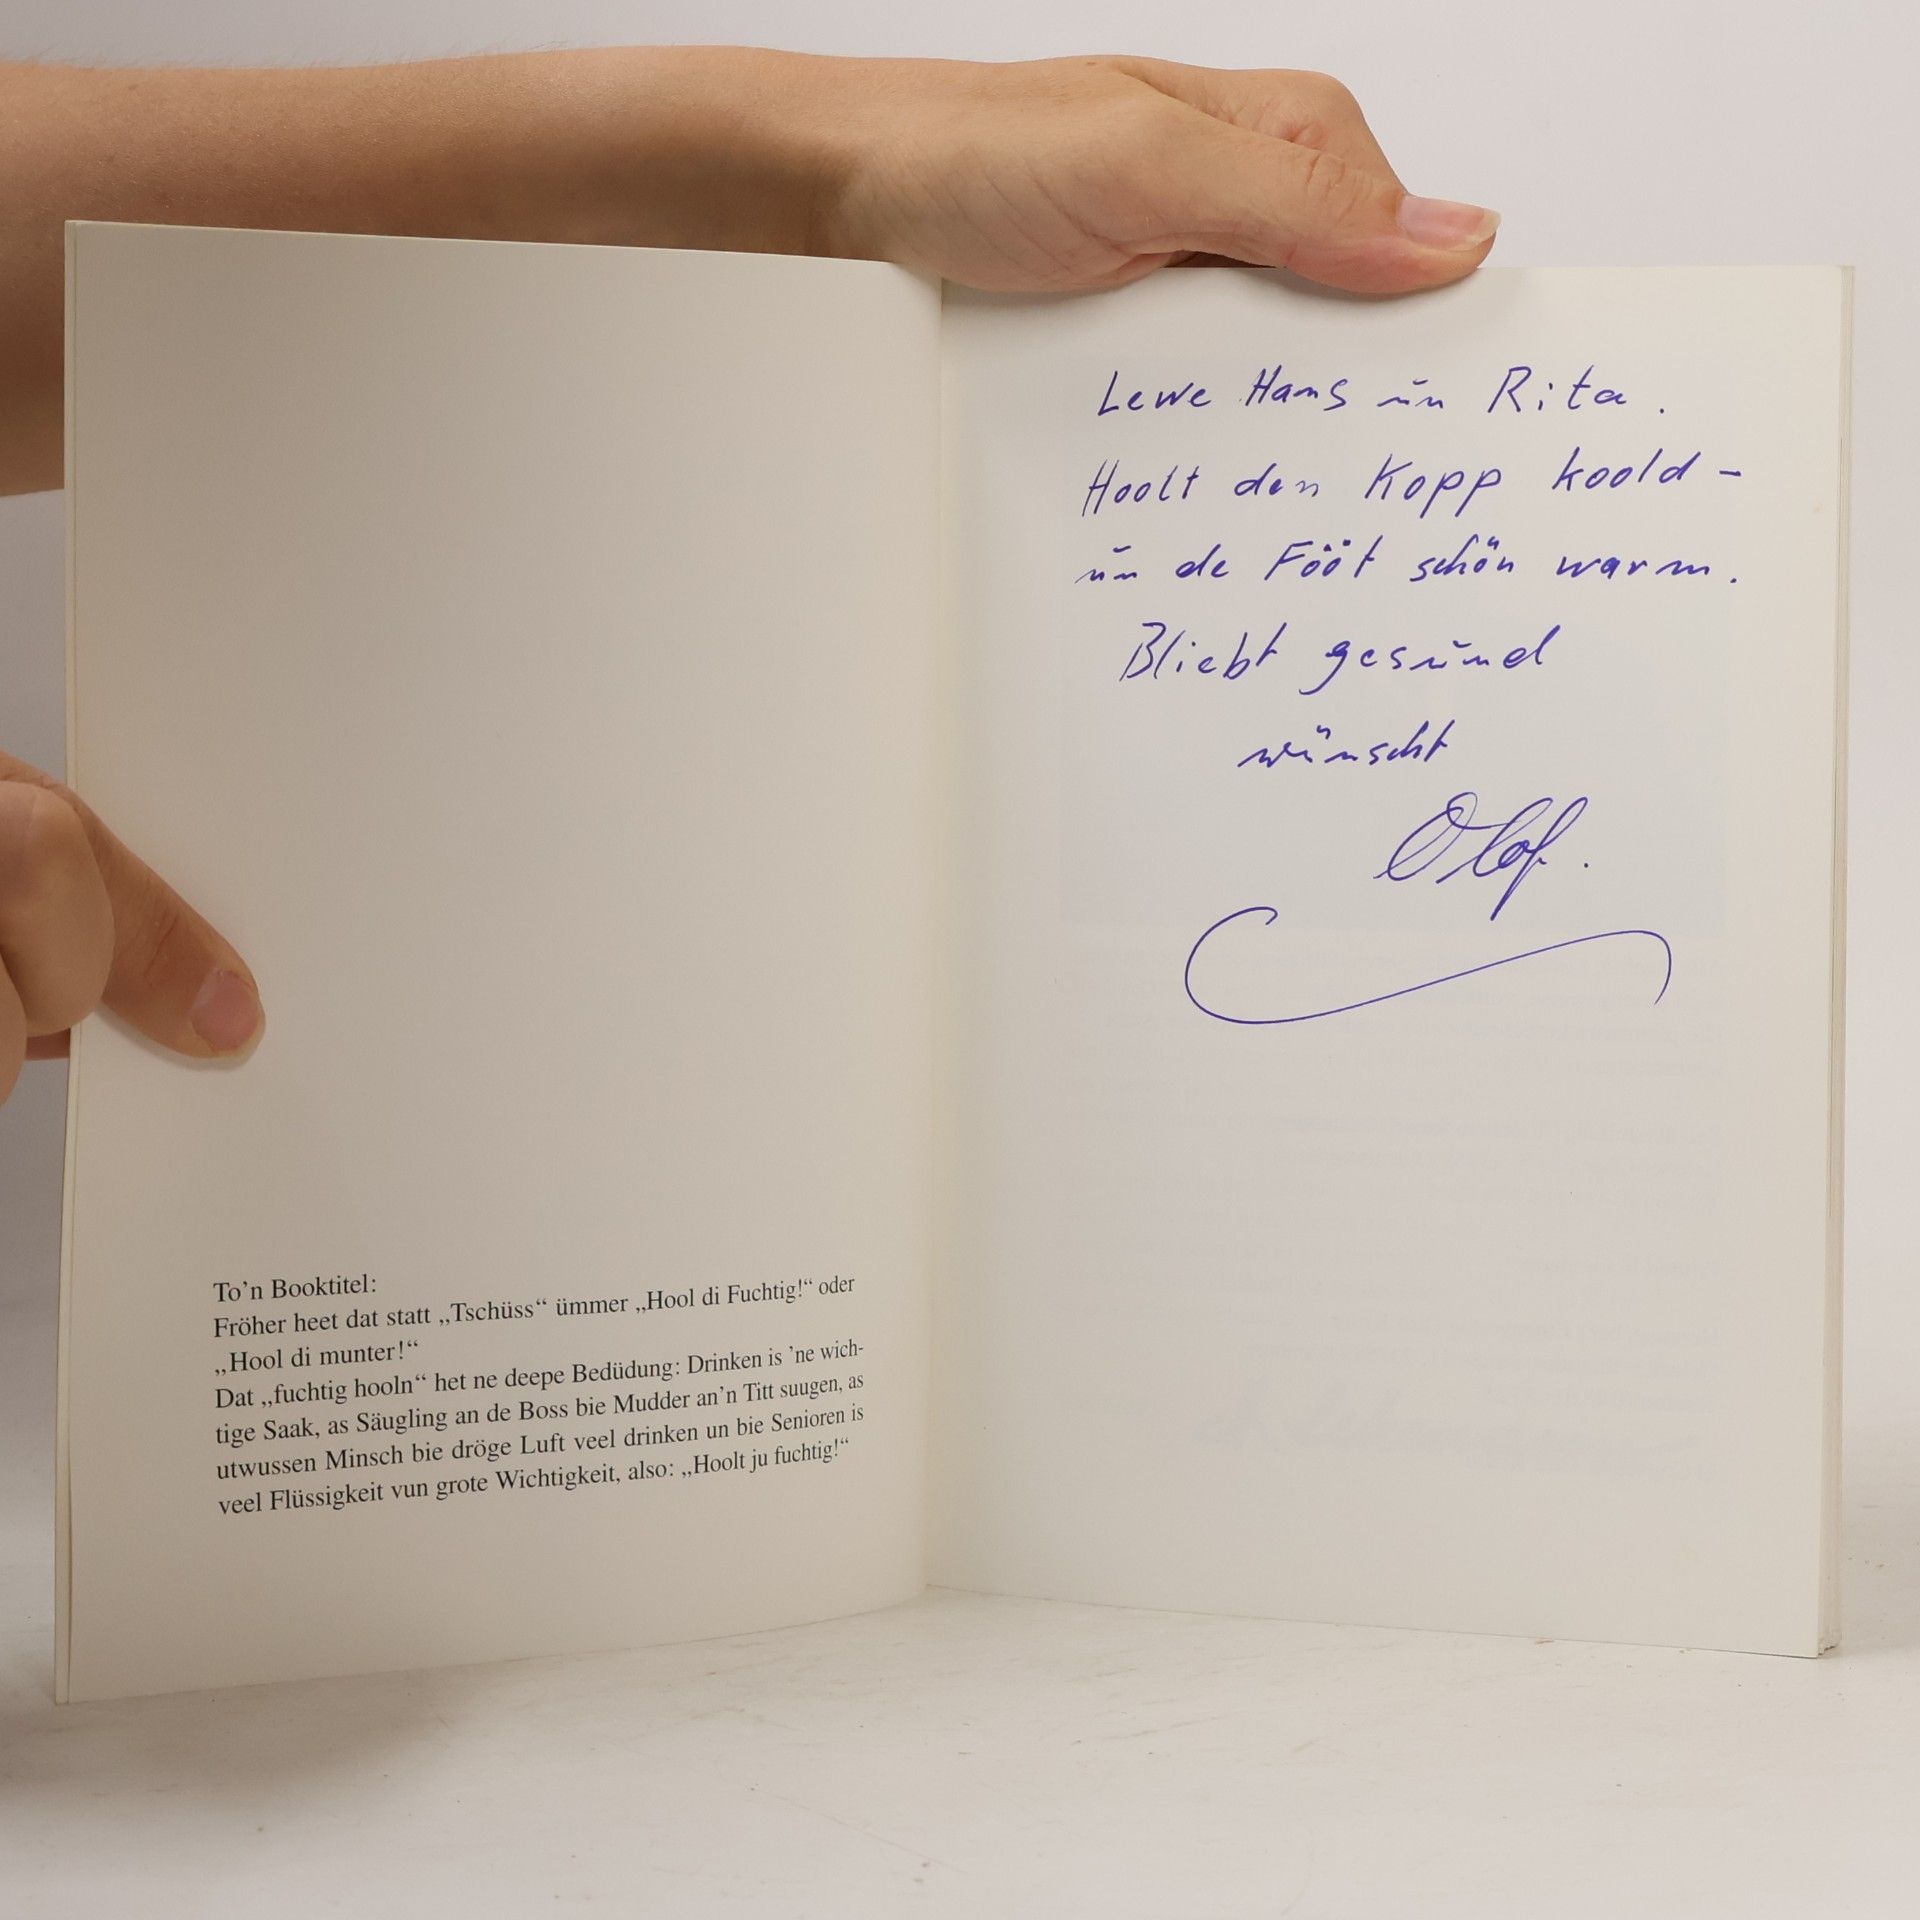 To’n Booktitel:
Fröher heet dat statt „Tschüss“ ümmer „Hool di Fuchtig!“ oder
„Hool di munter!“
Dat „fuchtig hooln“ het ne deepe Bedüdung: Drinken is ’ne wich-
tige Saak, as Säugling an de Boss bie Mudder an’n Titt suugen, as
utwussen Minsch bie dröge Luft veel drinken un bie Senioren is
veel Flüssigkeit vun grote Wichtigkeit, also: „Hoolt ju fuchtig!“
Lewe Hans un Rita.
Hoolt den Kopp koold –
un de Fööt schön warm.
Bliebt gesund
wünscht
Olof.